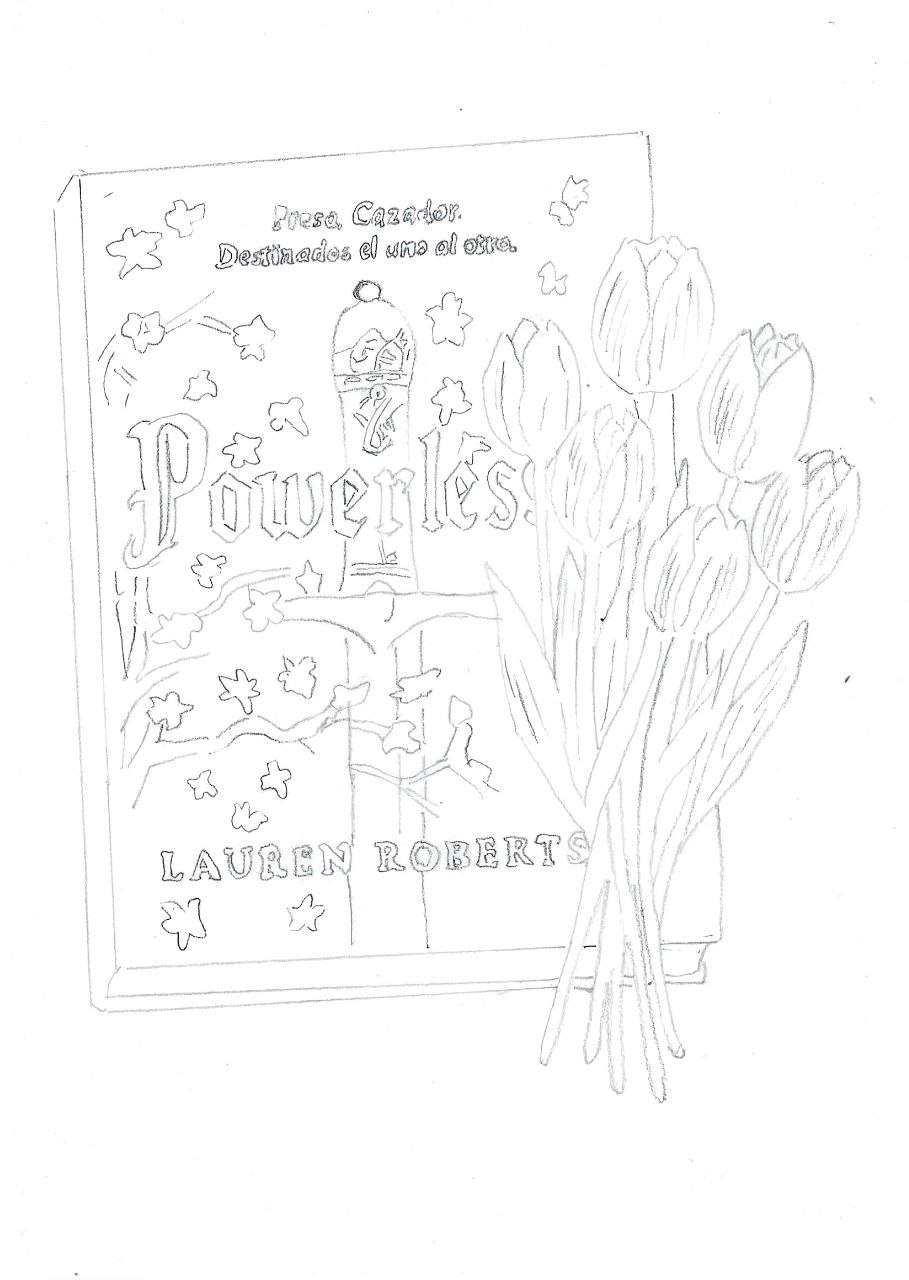 Presa, Cazador.
Destinados el uno al otro.
Powerless
LAUREN ROBERTS